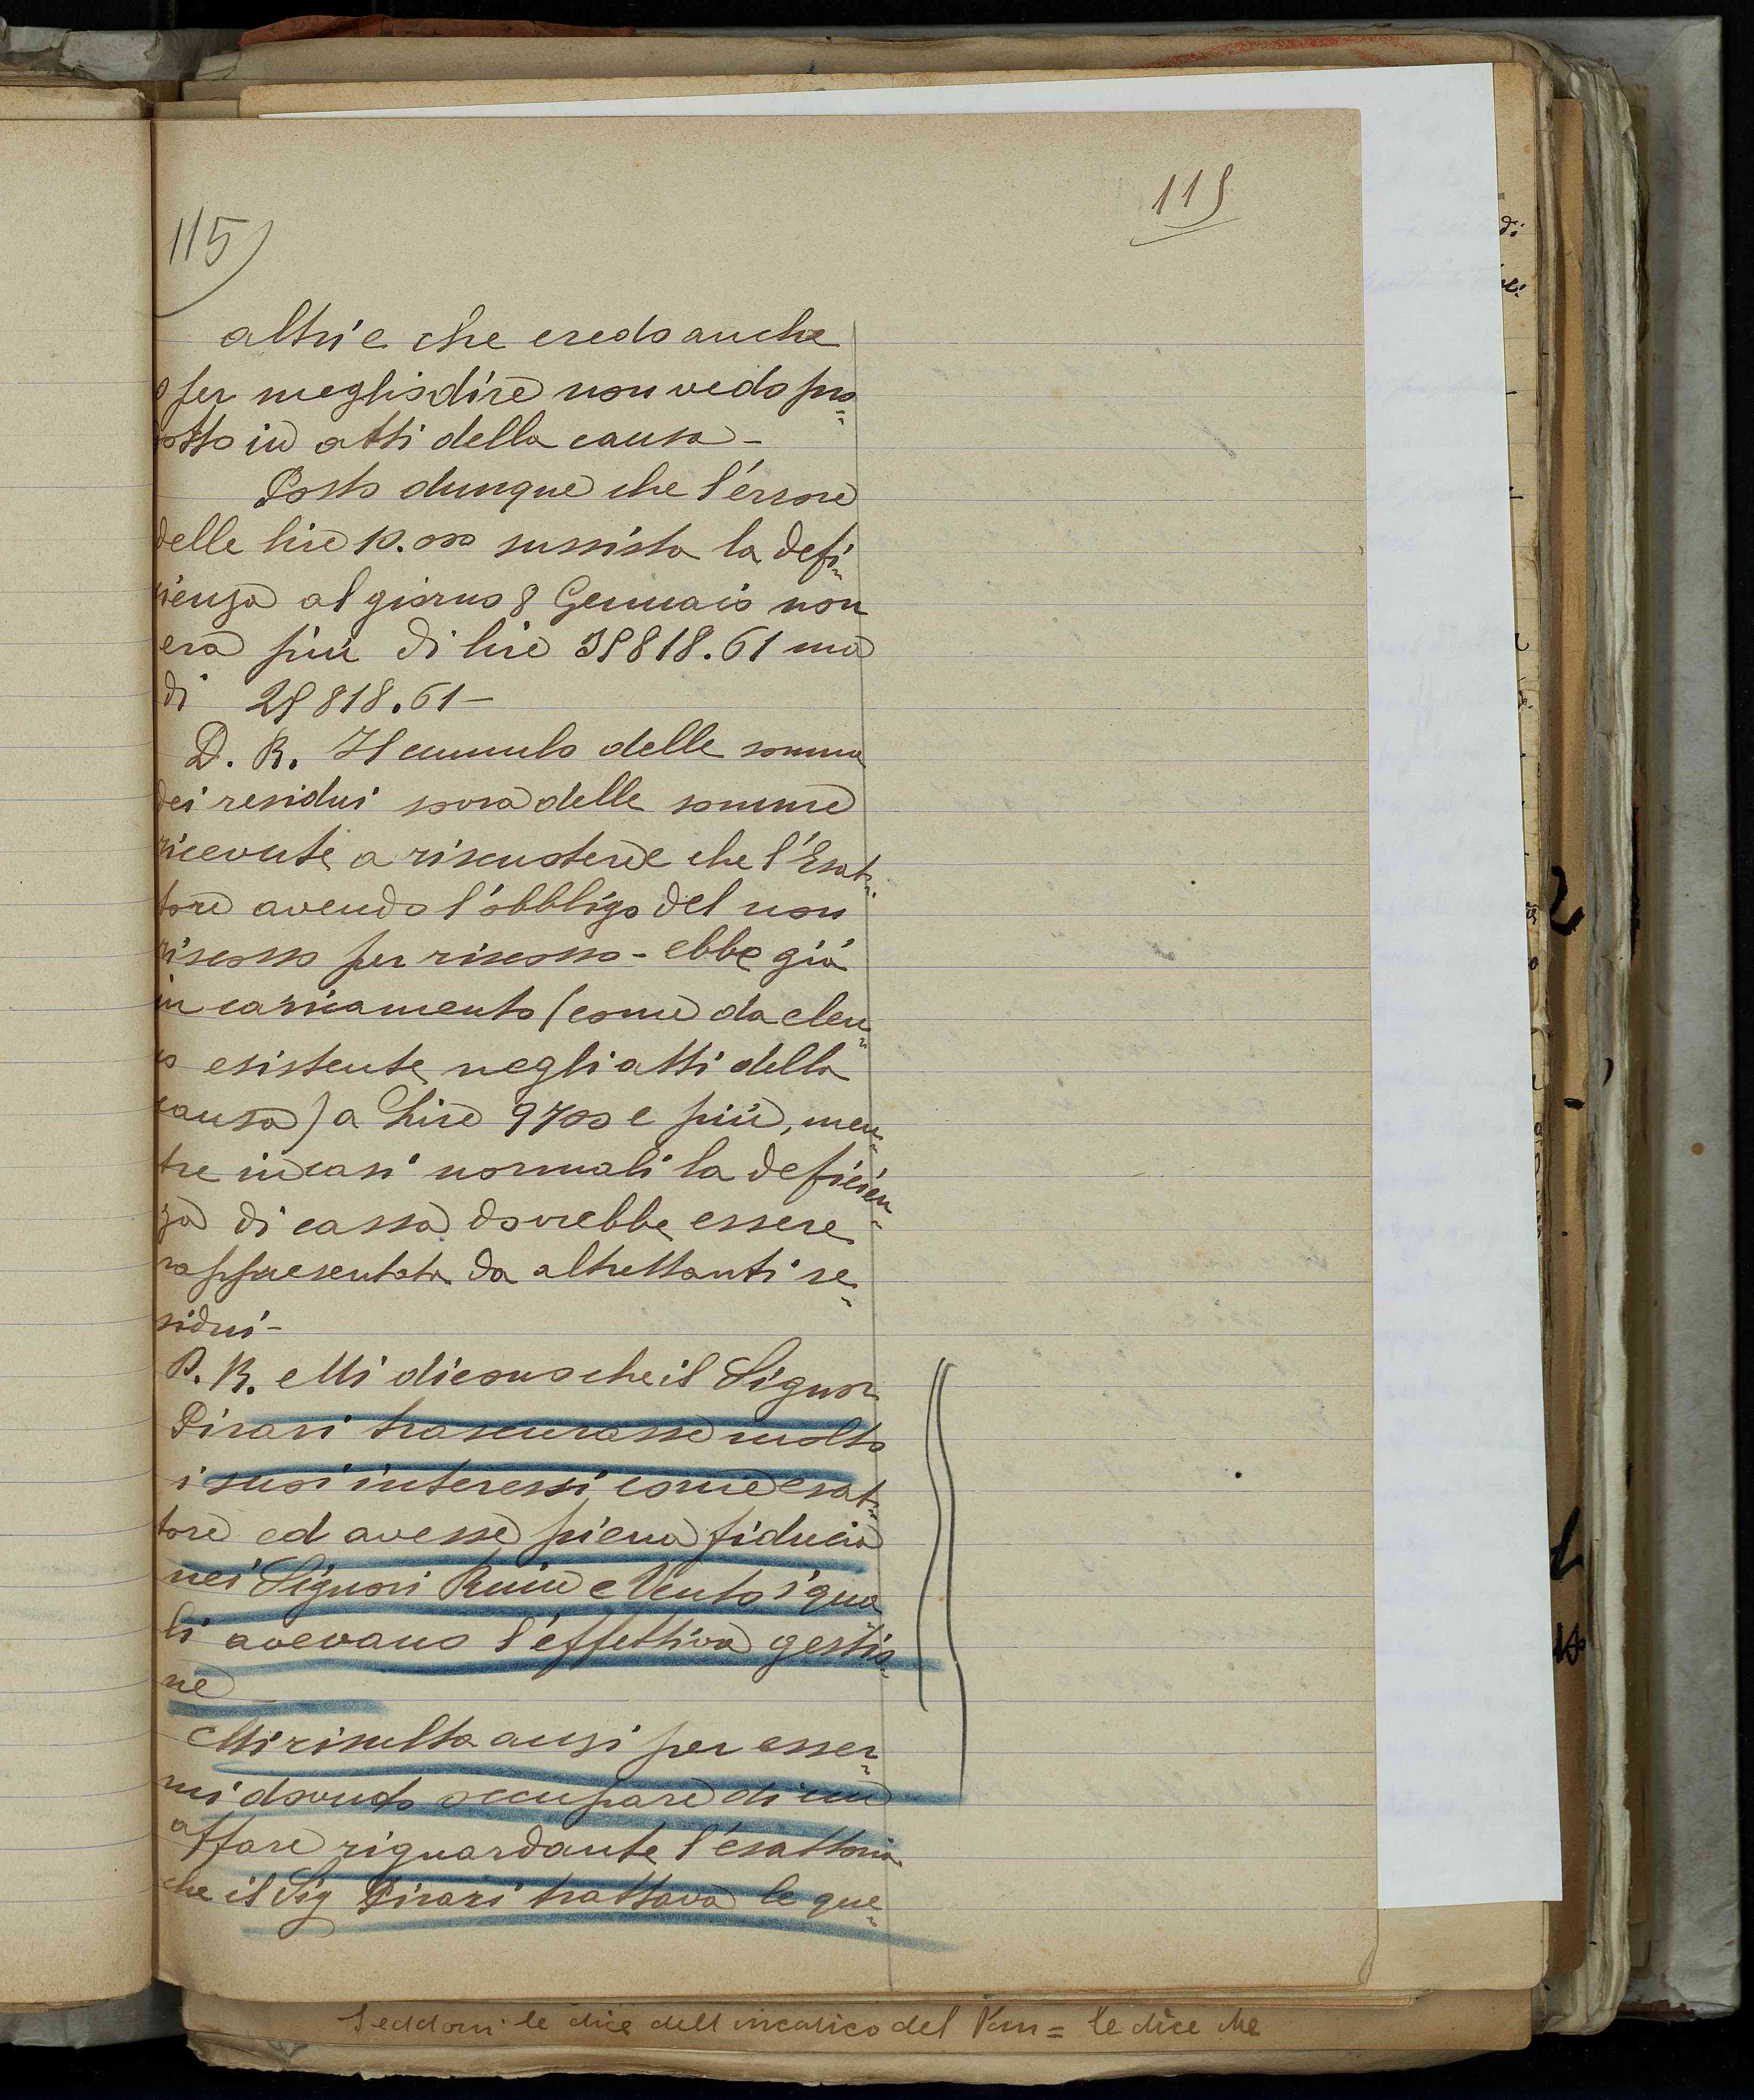 115)
115
altri e che credo anche
o per meglio dire non vedo pro=
dotto in atti della causa -
Posto dunque che l'errore
delle lire 10.000 sussista la defi=
cienza al giorno 8 Gennaio non
era più di lire 35818.61 ma
di 25818.61 -
D. R. Il cumulo delle somme
dei residui ossia delle somme
ricevute a riscuotere che l'Esat=
tore avendo l'obbligo del non
riscosso per riscosso - ebbe già
in carricamento (come da elen=
co esistente negli atti della
causa) a Lire 9700 e più, men=
tre in casi normali la deficien=
za di cassa dovrebbe essere
rappresentata da altrettanti re=
sidui -
D. R. Mi dicono che il Signor
Pirari trascurasse molto
i suoi interessi come esat=
tore ed avesse piena fiducia
nei Signori Ruiu e Vento i qua
li avevano l'effettiva gestio=
ne
Mi risulta anzi per esser=
mi dovuto occupare di un
affare riguardante l'esattoria
che il Sig Pirari trattava le que=
le dice dell'incarico del = le dice che